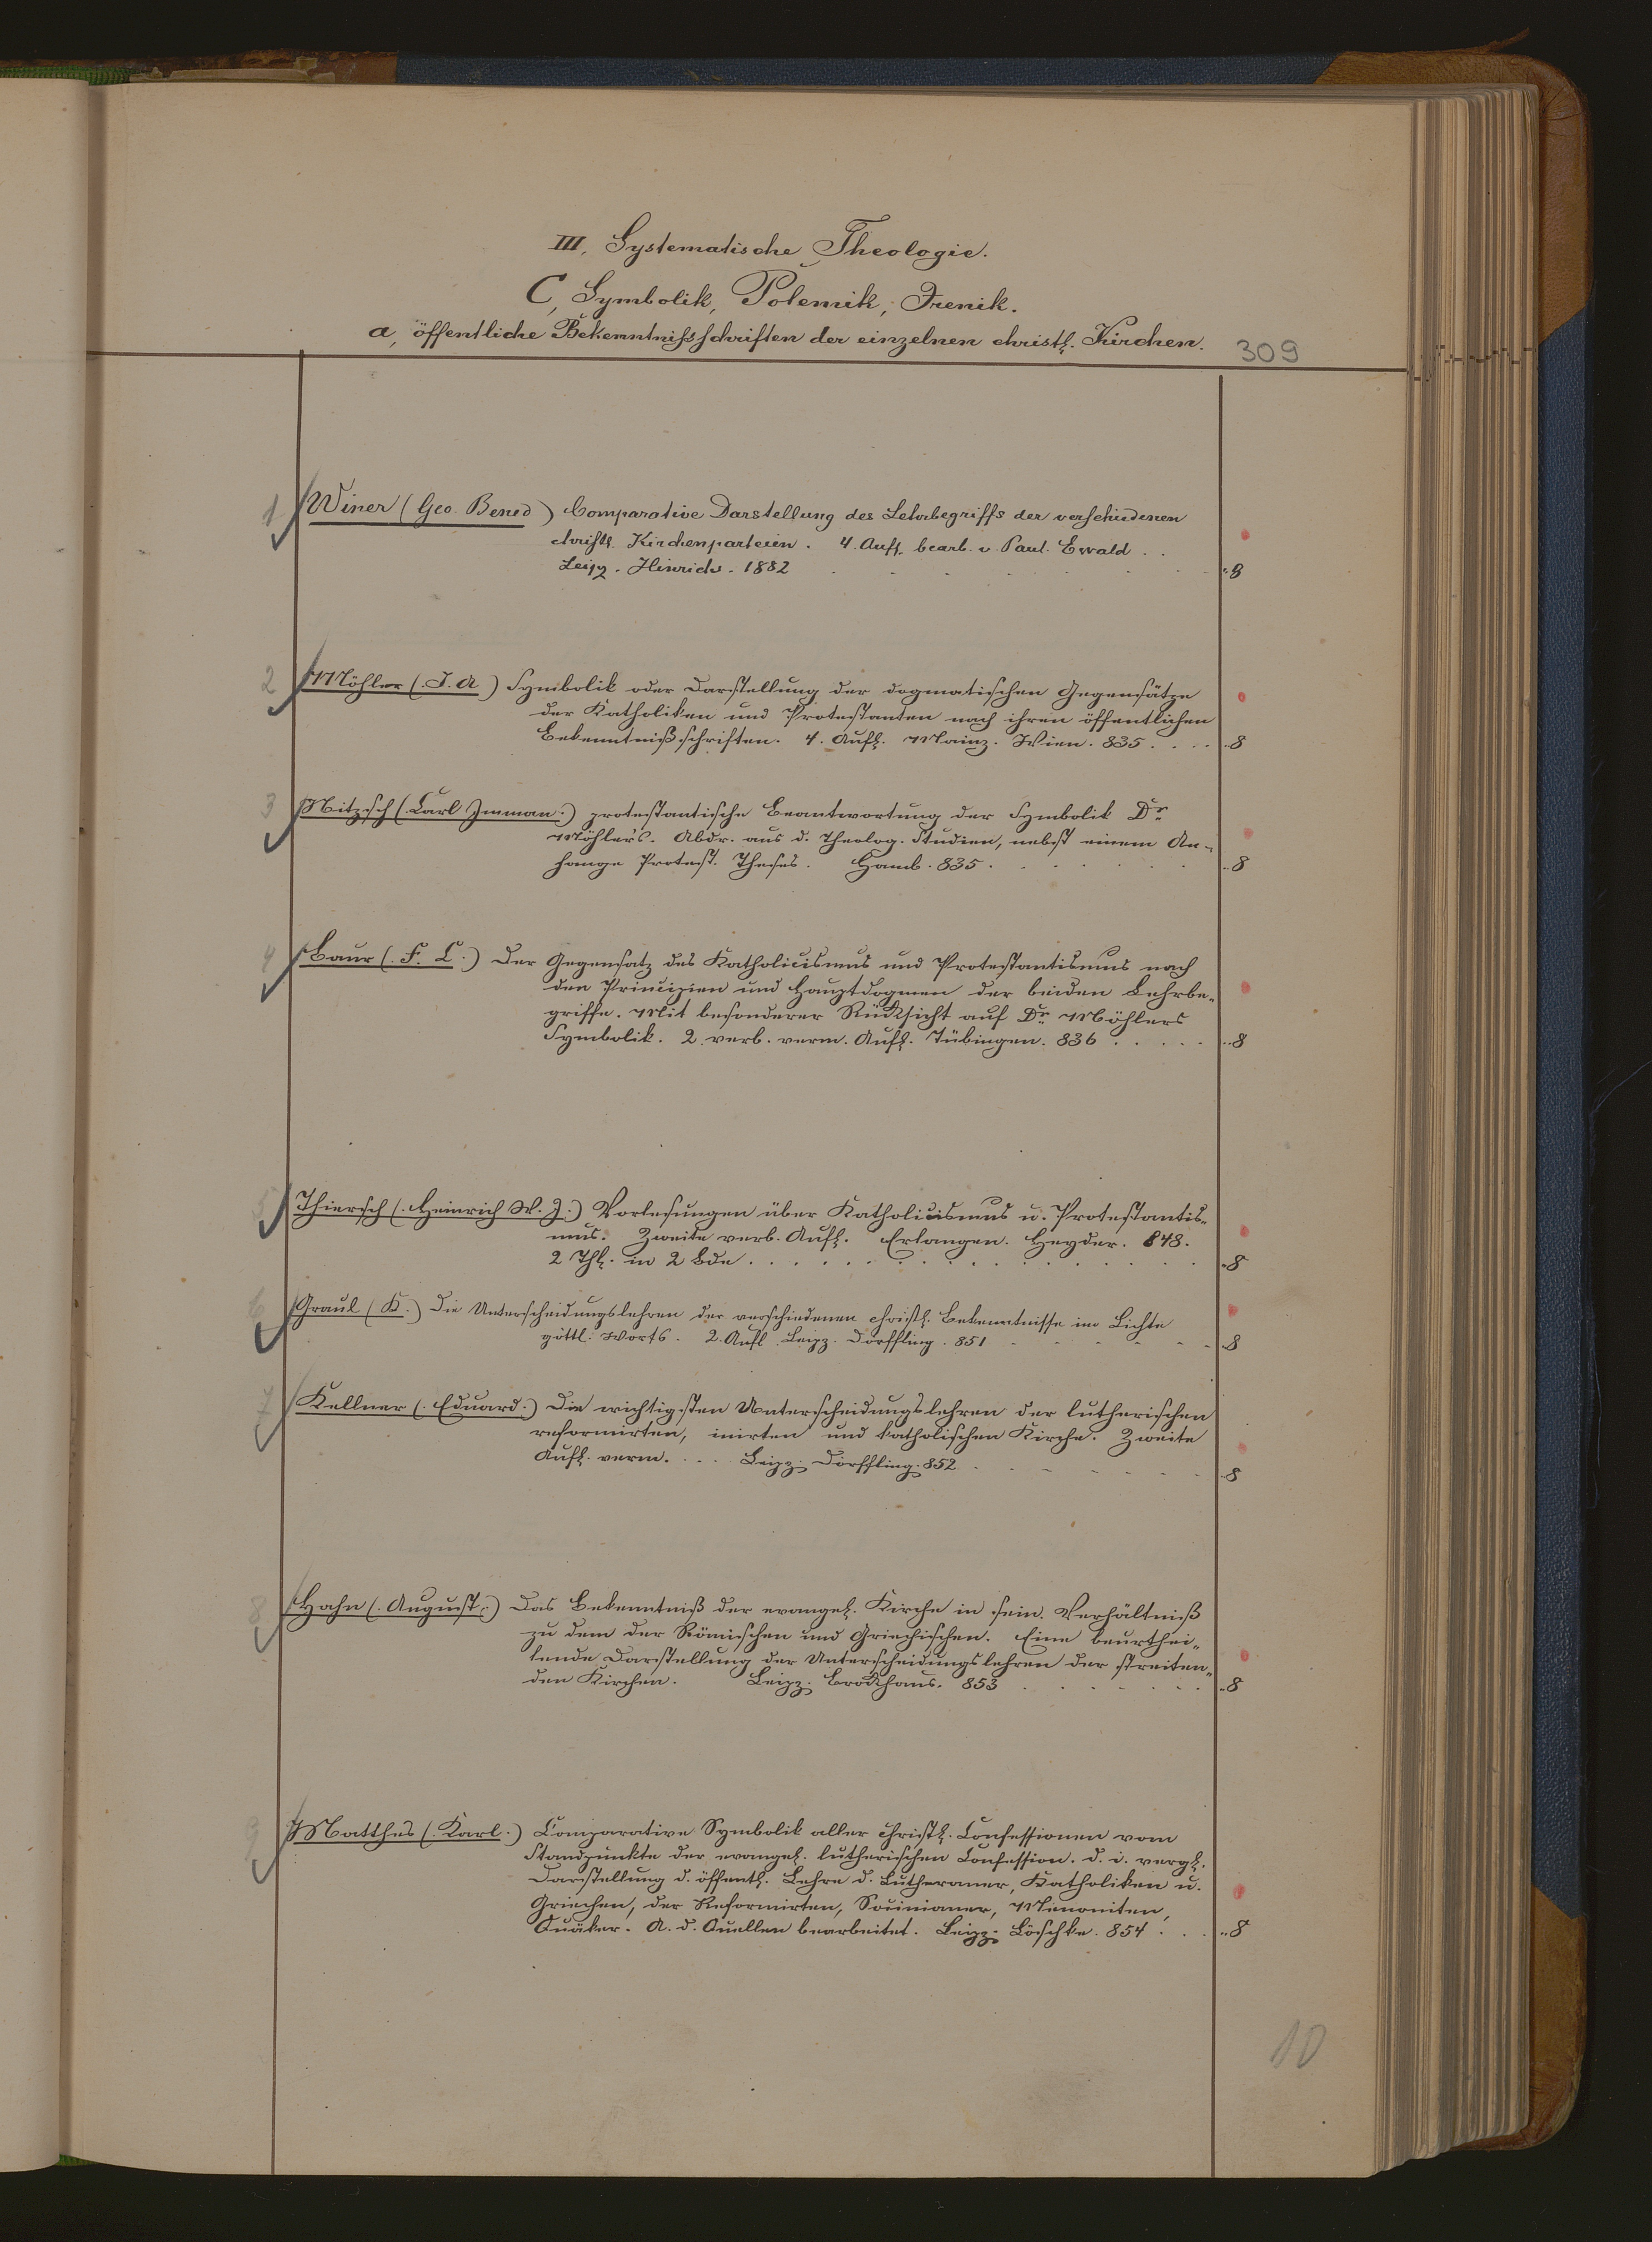 III, Systematische Theologie.
C, Symbolik, Polemik, Irenik.
a, öffentliche Bekenntnißschriften der einzelnen christl. Kirchen.
309
1 Winer (Geo. Bened) Comparative Darstellung des Lehrbegriffs der verschiedenen
christl. Kirchenparteien. 4. Aufl. bearb. v. Paul. Ewald . .
Leipz. Hinrichs. 1882 8
2 Möhler (. J. A ) Symbolik oder Darstellung der dogmatischen Gegensätze
der Katholiken und Protestanten nach ihren öffentlichen
Bekenntnißschriften. 4. Aufl. Mainz. Wien. 835 . . . . 8
3 Nitzsch (. Carl Imman.) protestantische Beantwortung der Symbolik Dr
Möhler's. Abdr. aus d. Theolog. Studien, nebst einem An-
hange Protest. Theses. Hamb. 835. 8
4 Baur (. F. C.) Der Gegensatz des Katholicismus und Protestantismus nach
den Principien und Hauptdogmen der beiden Lehrbe-
griffe. Mit besonderer Rücksicht auf Dr Möhlers
Symbolik. 2. verb. verm. Aufl. Tübingen. 836 . . . . . 8
5 Thiersch (. Heinrich W. J.) Vorlesungen über Katholicismus u. Protestantis-
mus. Zweite verb. Aufl. Erlangen. Heyder. 848.
2 Thl. in 2 Bde . . . . . . 8
6 Graul (K.) Die Unterscheidungslehren der verschiedenen christl. Bekenntnisse im Lichte
göttl. Worts. 2. Aufl Leipz. Dörffling. 851 8
7 Kellner (. Eduard.) Die wichtigsten Unterscheidungslehren der lutherischen
reformirten, unirten und katholischen Kirche. Zweite
Aufl. verm. . . . Leipz. Dörffling. 852 8
8 Hahn (. August.) Das Bekenntniß der evangel. Kirche in sein. Verhältniß
zu dem der Römischen und Griechischen. Eine beurthei-
lende Darstellung der Unterscheidungslehren der streiten-
den Kirchen. Leipz. Brockhaus. 853 8
9 Matthes (. Karl.) Comparative Symbolik aller christl. Confessionen vom
Standpunkte der evangel. lutherischen Confession. d. i. vergl.
Darstellung d. öffentl. Lehre d. Lutheraner, Katholiken u.
Griechen, der Reformirten, Socinianer, Menoniten,
Quäker. A. d. Quellen bearbeitet. Leipz. Löschke. 854 . . . 8
10